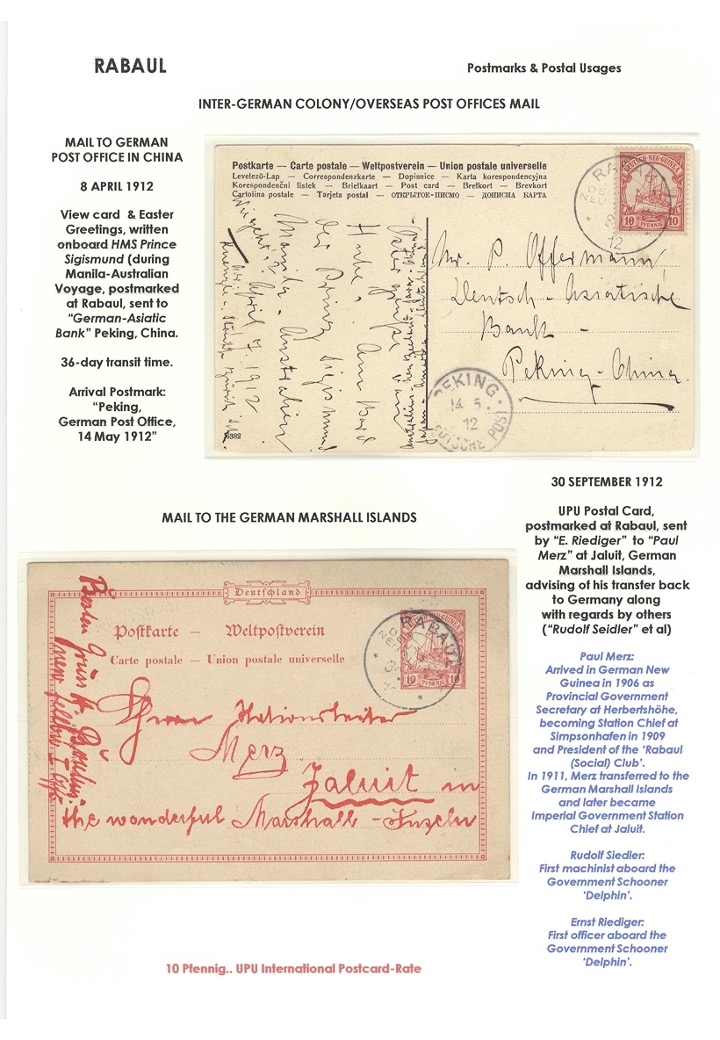 RABAUL
Postmarks & Postal Usages
INTER-GERMAN COLONY/OVERSEAS POST OFFICES MAIL
MAIL TO GERMAN
POST OFFICE IN CHINA
8 APRIL 1912
View card & Easter
Greetings, written
onboard HMS Prince
Sigismund (during
Manila-Australian
Voyage, postmarked
at Rabaul, sent to
"German-Asiatic
Bank" Peking, China.
36-day transit time.
Arrival Postmark:
"Peking,
German Post Office,
14 May 1912"
Postkarte — Carte postale — Weltpostverein — Union postale universelle
Levelező-Lap — Correspondenzkarte — Dopisnice — Karta korespondencyjna
Korespondenční lístek — Briefkaart — Post card — Brefkort — Brevkort
Cartolina postale — Tarjeta postal — ОТКРЫТОЕ-ПИСМО — ДОПИСНА КАРТА
RABAUL
12
10 PFENNIG 10
Mr. P. Offermann
Deutsch-Asiatische
Bank -
Peking-China.
PEKING
14 5
12
DEUTSCHE POST
An Bord
der Prinz Sigismund
Manila-Australien
April 7. 1912
30 SEPTEMBER 1912
UPU Postal Card,
postmarked at Rabaul, sent
by "E. Riediger" to "Paul
Merz" at Jaluit, German
Marshall Islands,
advising of his transfer back
to Germany along
with regards by others
("Rudolf Seidler" et al)
Paul Merz:
Arrived in German New
Guinea in 1906 as
Provincial Government
Secretary at Herbertshöhe,
becoming Station Chief at
Simpsonhafen in 1909
and President of the 'Rabaul
(Social) Club'.
In 1911, Merz transferred to the
German Marshall Islands
and later became
Imperial Government Station
Chief at Jaluit.
Rudolf Siedler:
First machinist aboard the
Government Schooner
'Delphin'.
Ernst Riediger:
First officer aboard the
Government Schooner
'Delphin'.
MAIL TO THE GERMAN MARSHALL ISLANDS
Deutschland
Postkarte — Weltpostverein
Carte postale — Union postale universelle
RABAUL
10 PFENNIG 10
Herrn Stationsleiter
Merz
Jaluit in
the wonderful Marshall-Inseln
Besten Gruss
10 Pfennig.. UPU International Postcard-Rate